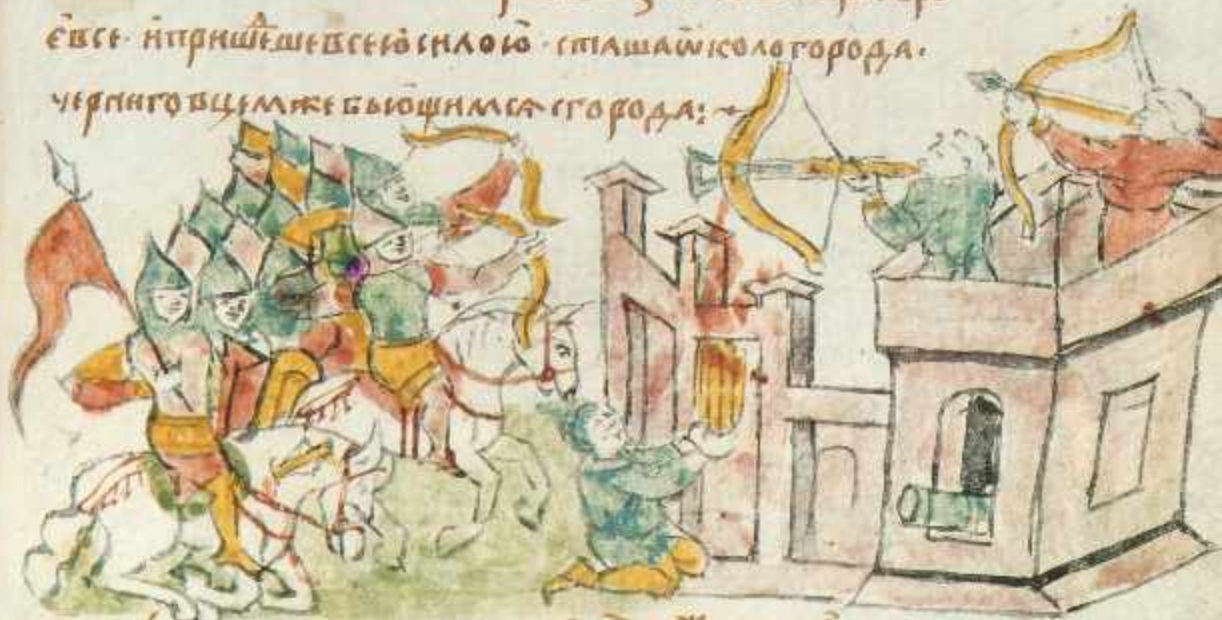 є̇все · и҆пришⷣешевсею҆силою҆ · сташаѡ҆кологорода ·
черниговцемжебьющимсѧсгорода: